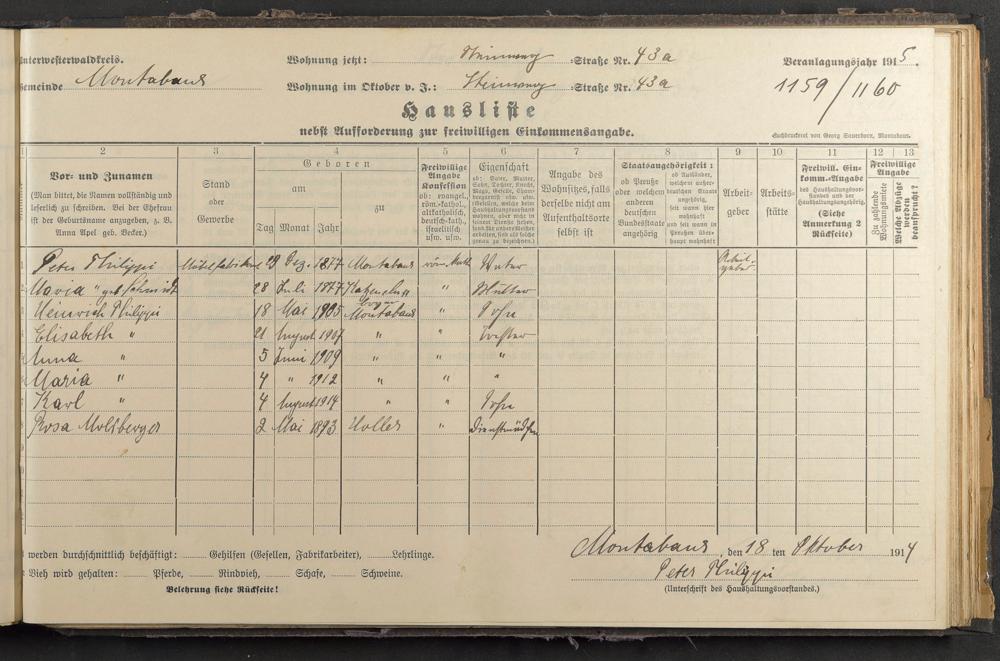 Unterwesterwaldkreis. Wohnung jetzt: Steinweg -Straße Nr. 43a Veranlagungsjahr 1915.
Gemeinde Montabaur Wohnung im Oktober v. J.: Steinweg -Straße Nr. 43a 1159/1160
Hausliste
nebst Aufforderung zur freiwilligen Einkommensangabe.
Buchdruckerei von Georg Sauerborn, Montabaur.
2 3 4 5 6 7 8 9 10 11 12 13
Vor- und Zunamen
(Man bittet, die Namen vollständig und
leserlich zu schreiben. Bei der Ehefrau
ist der Geburtsname anzugeben, z. B.
Anna Apel geb. Becker.)
Stand
oder
Gewerbe
Geboren
am zu
Tag Monat Jahr
Freiwillige
Angabe
Konfession
ob: evangel.,
röm.-kathol.,
altkatholisch,
deutsch-kath.,
israelitisch
usw. usw.
Eigenschaft
ob: Vater, Mutter,
Sohn, Tochter, Knecht,
Magd, Geselle,
Angabe des
Wohnsitzes, falls
derselbe nicht am
Aufenthaltsorte
selbst ist
Staatsangehörigkeit:
ob Preuße
oder welchem
anderen
deutschen
Bundesstaate
angehörig
ob Ausländer,
welchem außer-
deutschen Staate
angehörig,
seit wann hier
wohnhaft
und seit wann in
Preußen über-
haupt wohnhaft
Arbeit-
geber
Arbeits-
stätte
Freiwill. Ein-
komm.-Angabe
des Haushaltungsvor-
standes und der
Haushaltungsangehörig.
(Siehe
Anmerkung 2
Rückseite)
Freiwillige
Angabe
Zu zahlende
Wohnungsmiete
Welche Abzüge
werden
beansprucht?
Peter Philippi Möbelfabrikant 29 Dez. 1877 Montabaur röm. kath. Vater Arbeit-
geber
Maria " geb. Schmidt 28 Juli 1877 " Mutter
Heinrich Philippi 18 Mai 1905 Montabaur " Sohn
Elisabeth " 21 August 1907 " " Tochter
Anna " 5 Juni 1909 " " "
Maria " 4 " 1912 " " "
Karl " 4 August 1914 " " Sohn
Rosa Molsberger 2 Mai 1893 Holler " Dienstmädchen
werden durchschnittlich beschäftigt: Gehilfen (Gesellen, Fabrikarbeiter), Lehrlinge.
Vieh wird gehalten: Pferde, Rindvieh, Schafe, Schweine.
Belehrung siehe Rückseite!
Montabaur, den 18 ten Oktober 1914
Peter Philippi
(Unterschrift des Haushaltungsvorstandes.)